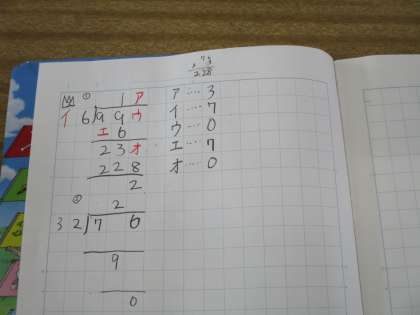 76
× 3
228
① 1ア
イ6)99ウ
エ6
23オ
228
2
ア…3
イ…7
ウ…0
エ…7
オ…0
② 2
32)7 6
9
0